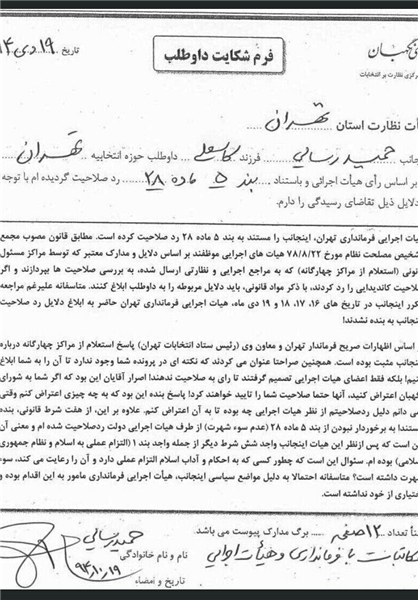 ی نگهبان
رکزی نظارت بر انتخابات
فرم شکایت داوطلب
تاریخ ۱۹ دی ۹۴
یأت نظارت استان تهران
جانب حمید رسایی فرزند داوطلب حوزه انتخابیه تهران
بر اساس رأی هیأت اجرائی و باستناد بند ۵ ماده ۲۸ رد صلاحیت گردیده ام با توجه
دلایل ذیل تقاضای رسیدگی را دارم.
یات اجرایی فرمانداری تهران، اینجانب را مستند به بند ۵ ماده ۲۸ رد صلاحیت کرده است. مطابق قانون مصوب مجمع
شخیص مصلحت نظام مورخ ۷۸/۸/۲۲ هیات های اجرایی موظفند بر اساس دلایل و مدارک معتبر که توسط مراکز مسئول
نونی (استعلام از مراکز چهارگانه) که به مراجع اجرایی و نظارتی ارسال شده، به بررسی صلاحیت ها بپردازند و اگر
صلاحیت کاندیدایی را رد کردند، با ذکر مواد قانونی، باید دلایل مربوطه را به داوطلب ابلاغ کنند. متاسفانه علیرغم مراجعه
کرر اینجانب در تاریخ های ۱۶، ۱۷، ۱۸ و ۱۹ دی ماه، هیات اجرایی فرمانداری تهران حاضر به ابلاغ دلایل رد صلاحیت
جانب به بنده نشدند!
ر اساس اظهارات صریح فرماندار تهران و معاون وی (رئیس ستاد انتخابات تهران) پاسخ استعلام از مراکز چهارگانه درباره
ینجانب مثبت بوده است. همچنین صراحتا عنوان می کردند که نکته ای در پرونده شما وجود ندارد تا آن را به شما ابلاغ
نیم! بلکه فقط اعضای هیات اجرایی تصمیم گرفتند تا رای به صلاحیت ندهند! اصرار آقایان این بود که اگر شما به شورای
گهبان اعتراض کنید، آنها حتما صلاحیت شما را تایید خواهند کرد! پاسخ بنده این بود که به چه چیزی اعتراض کنم وقتی
می دانم دلیل ردصلاحیتم از نظر هیات اجرایی چه بوده تا به آن اعتراض کنم. علاوه بر این، از هفت شرط قانونی، بنده
ستندا به برخوردار نبودن از بند ۵ ماده ۲۸ (عدم سوء شهرت) از طرف هیات اجرایی دولت ردصلاحیت شده ام و معنی آن
ین است که پس ازنظر این هیات اینجانب واجد شش شرط دیگر از جمله واجد بند ۱ (التزام عملی به اسلام و نظام جمهوری
سلامی) بوده ام. سئوال این است که چطور کسی که به احکام و آداب اسلام التزام عملی دارد و آن را رعایت می کند، سوء
شهرت داشته است؟ متاسفانه احتمالا به دلیل مواضع سیاسی اینجانب، هیأت اجرایی فرمانداری مامور به این اقدام بوده و
ختیاری از خود نداشته است.
ضمناً تعداد ۱۲ صفحه برگ مدارک پیوست می باشد.
مکاتبات با فرمانداری و هیأت اجرایی
نام و نام خانوادگی حمید رسایی
تاریخ و امضاء ۹۴,۱۰,۱۹